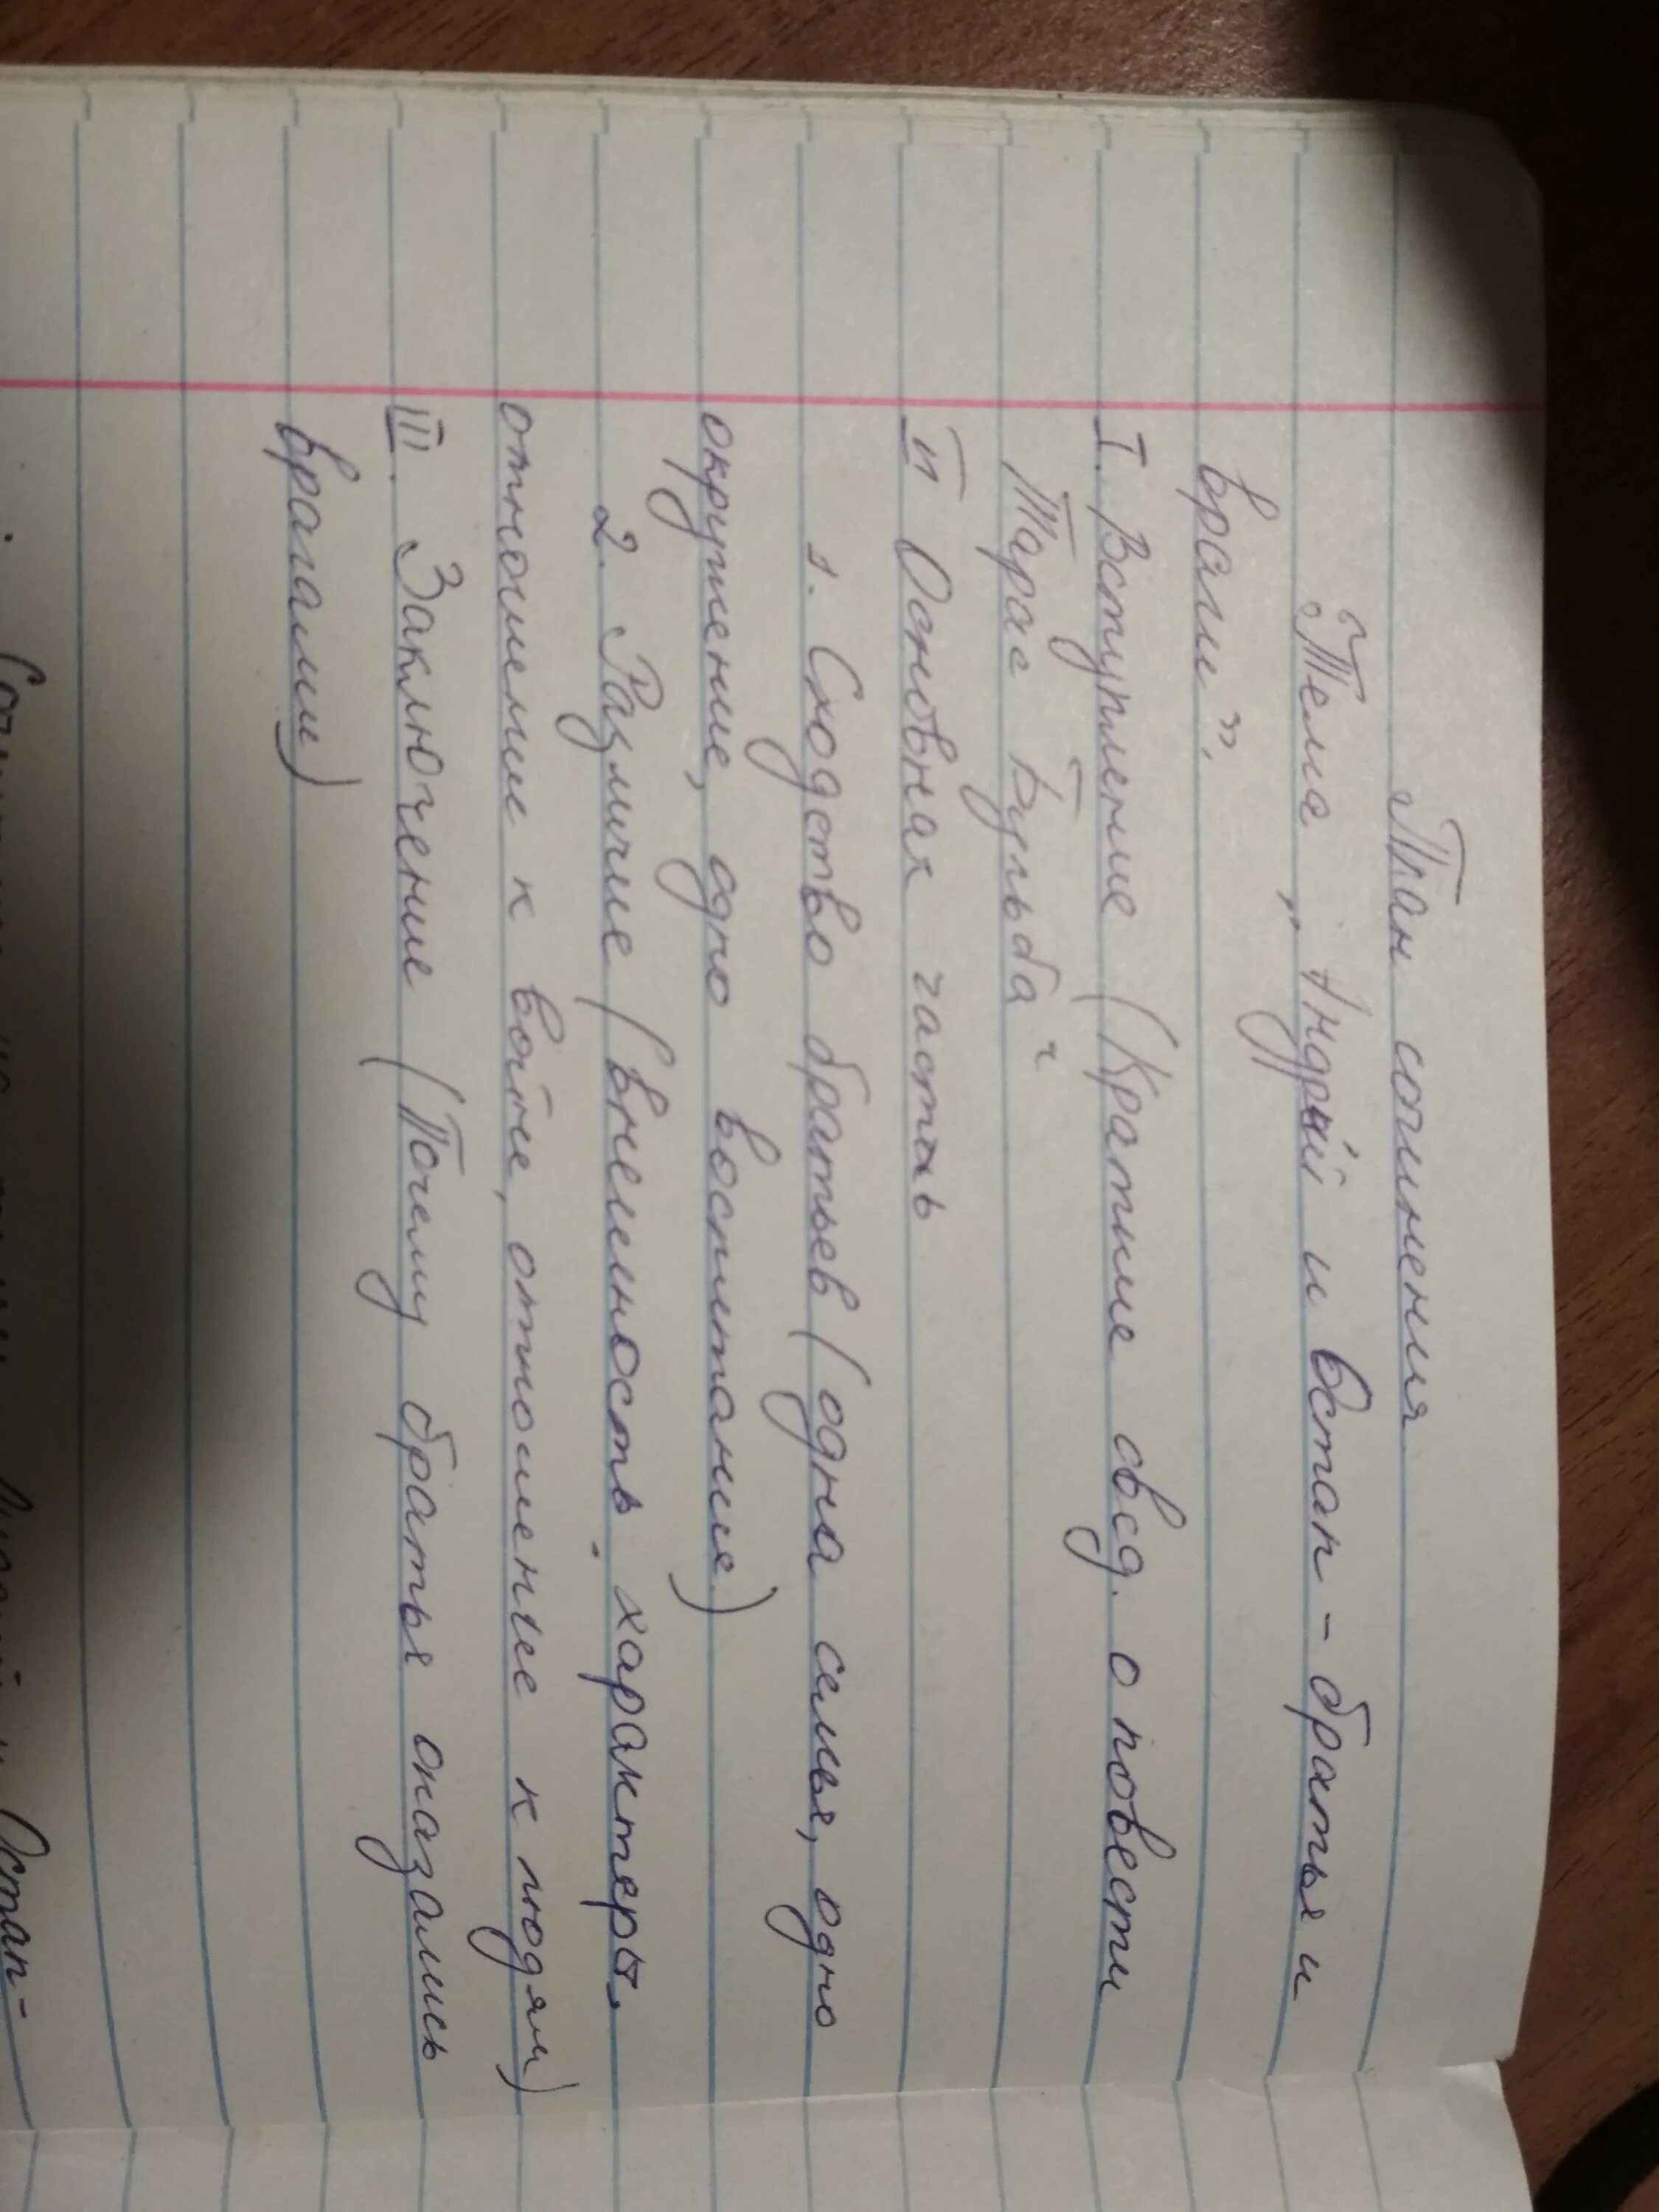 План сочинения
Тема „Андрий и Остап - братья и
враги".
I. Вступление (Краткие свед. о повести
Тарас Бульба"
II Основная часть
1. Сходство братьев (одна семья, одно
окружение, одно воспитание)
2. Различие (внешность. характеры.
отношение к войне, отношение к людям)
III. Заключение (Почему братья оказались
врагами)
Остап-